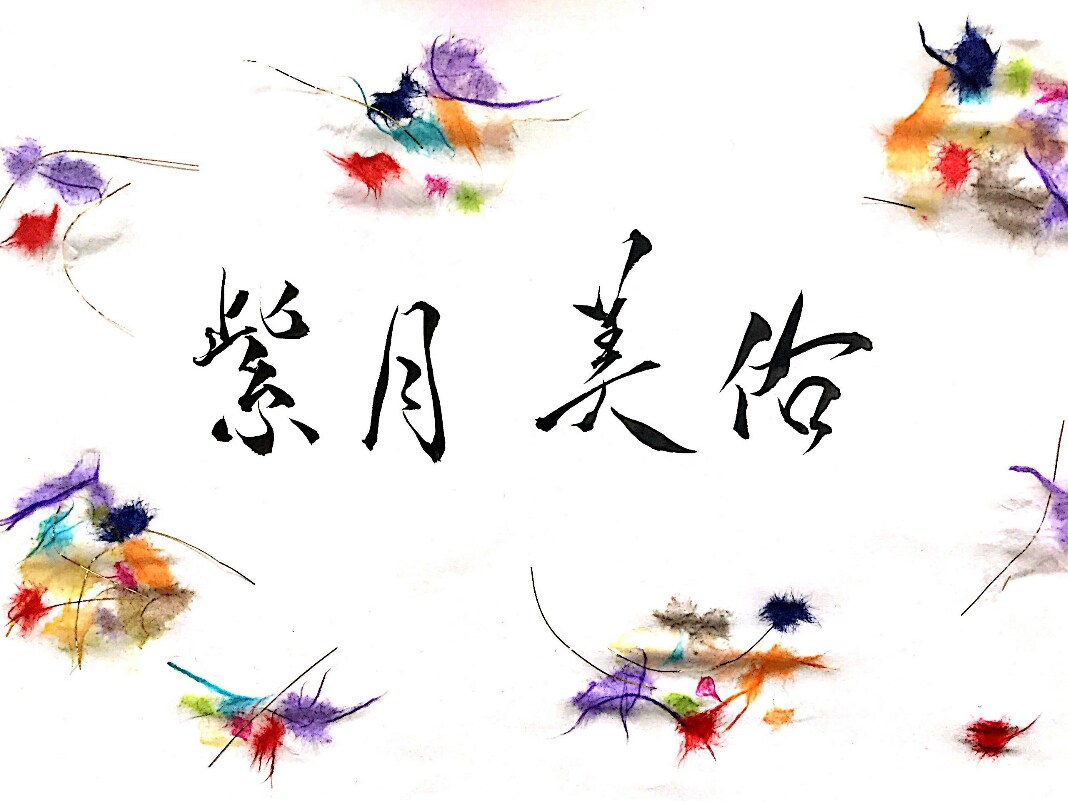 紫月 美佑